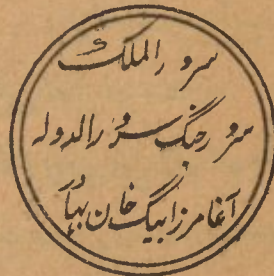 سرور الملک
سرور جنگ سرور الدولہ
آغا مرزا بیگ خان بہادر